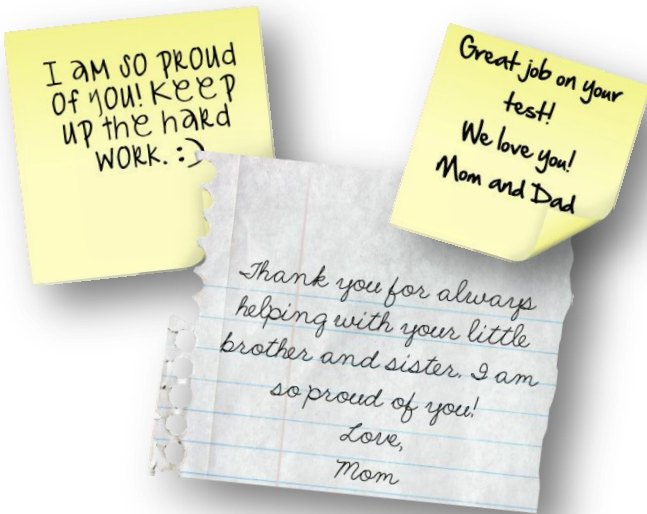 I am so proud
of you! Keep
up the hard
work. :)
Great job on your
test!
We love you!
Mom and Dad
Thank you for always
helping with your little
brother and sister. I am
so proud of you!
Love,
Mom